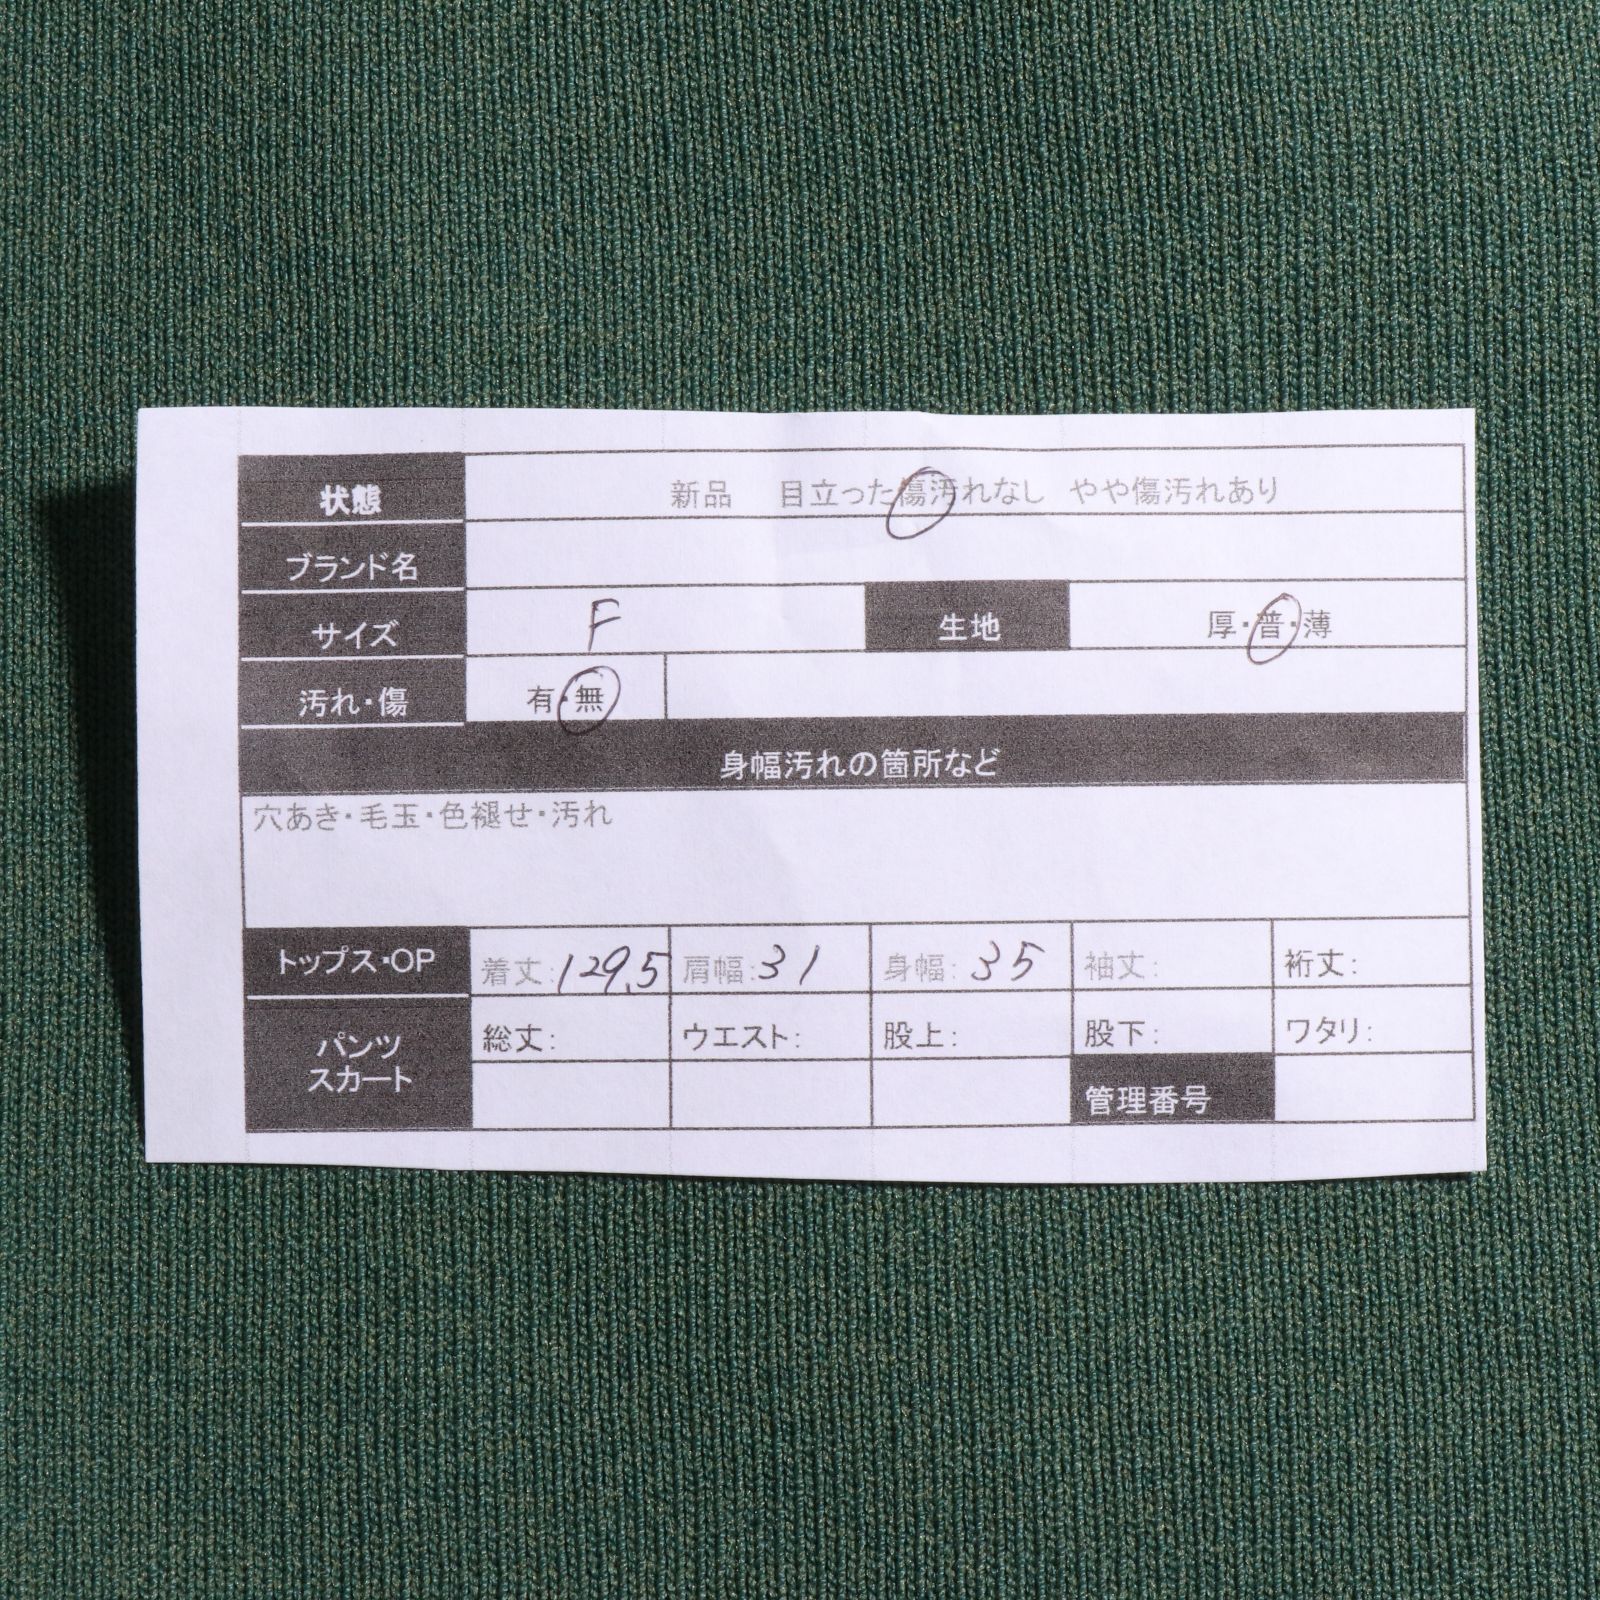 状態 新品 目立った傷汚れなし やや傷汚れあり
ブランド名
サイズ F 生地 厚・普・薄
汚れ・傷 有・無
身幅汚れの箇所など
穴あき・毛玉・色褪せ・汚れ
トップス・OP 着丈:129.5 肩幅:31 身幅:35 袖丈: 裄丈:
パンツ スカート 総丈: ウエスト: 股上: 股下: ワタリ:
管理番号